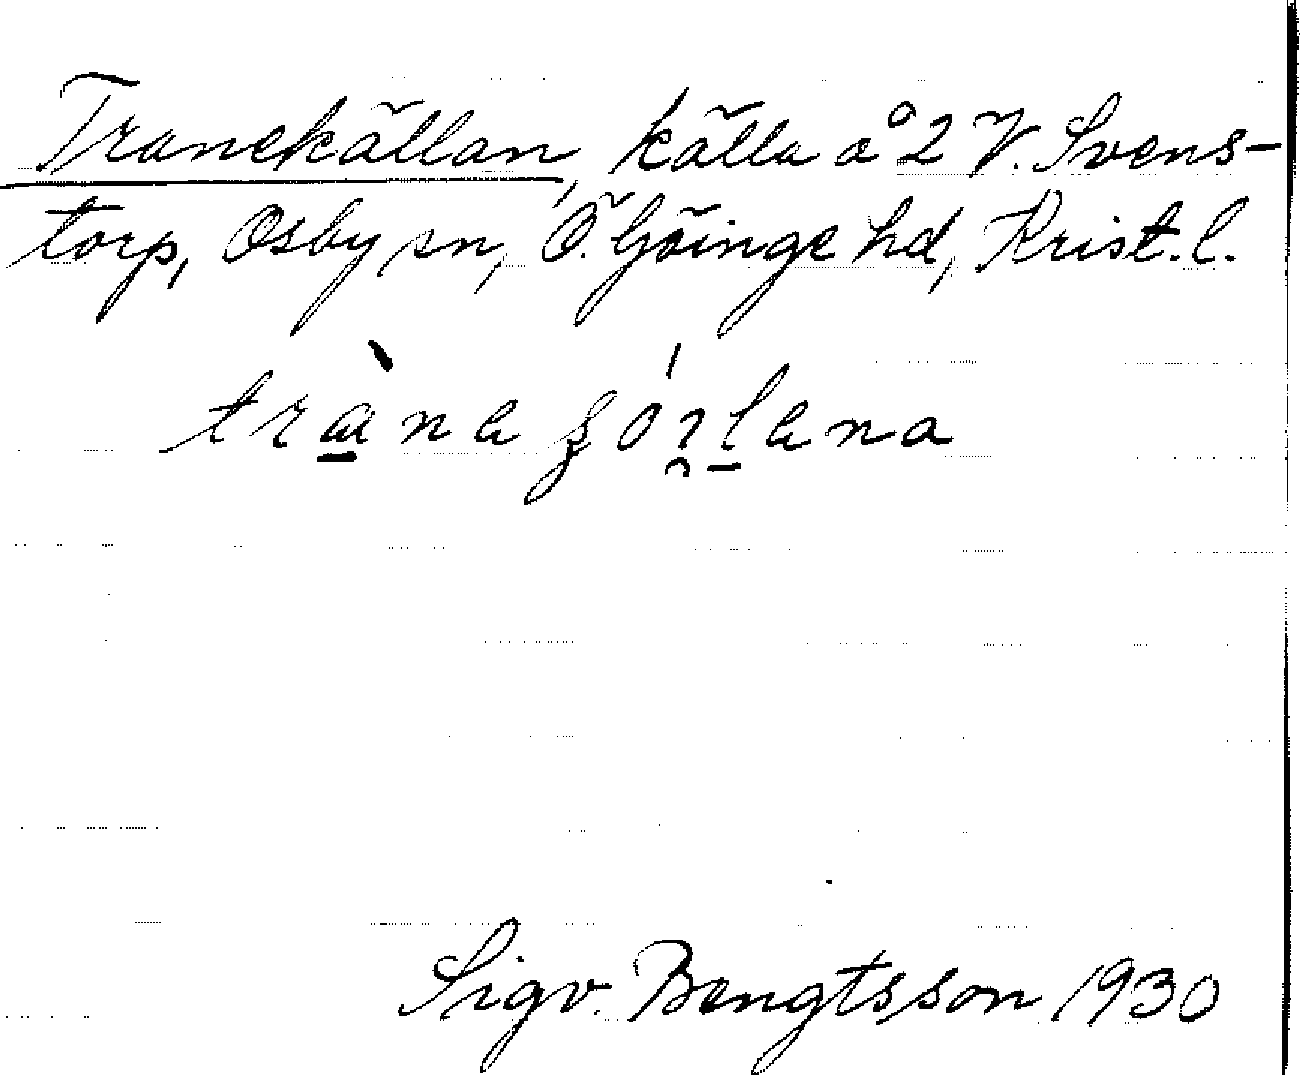 Tranekällan, källa å 2 V. Svens-
torp, Osby sn, Ö. Göinge hd, Krist. l.
Sigv. Bengtsson 1930